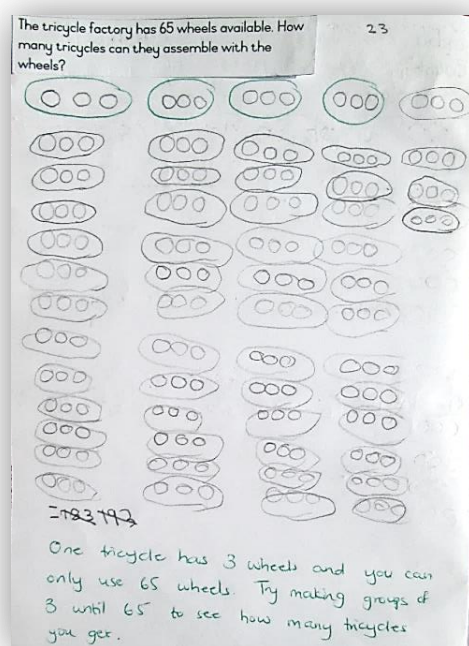 The tricycle factory has 65 wheels available. How
many tricycles can they assemble with the
wheels?
23
One tricycle has 3 wheels and you can
only use 65 wheels. Try making groups of
3 until 65 to see how many tricycles
you get.